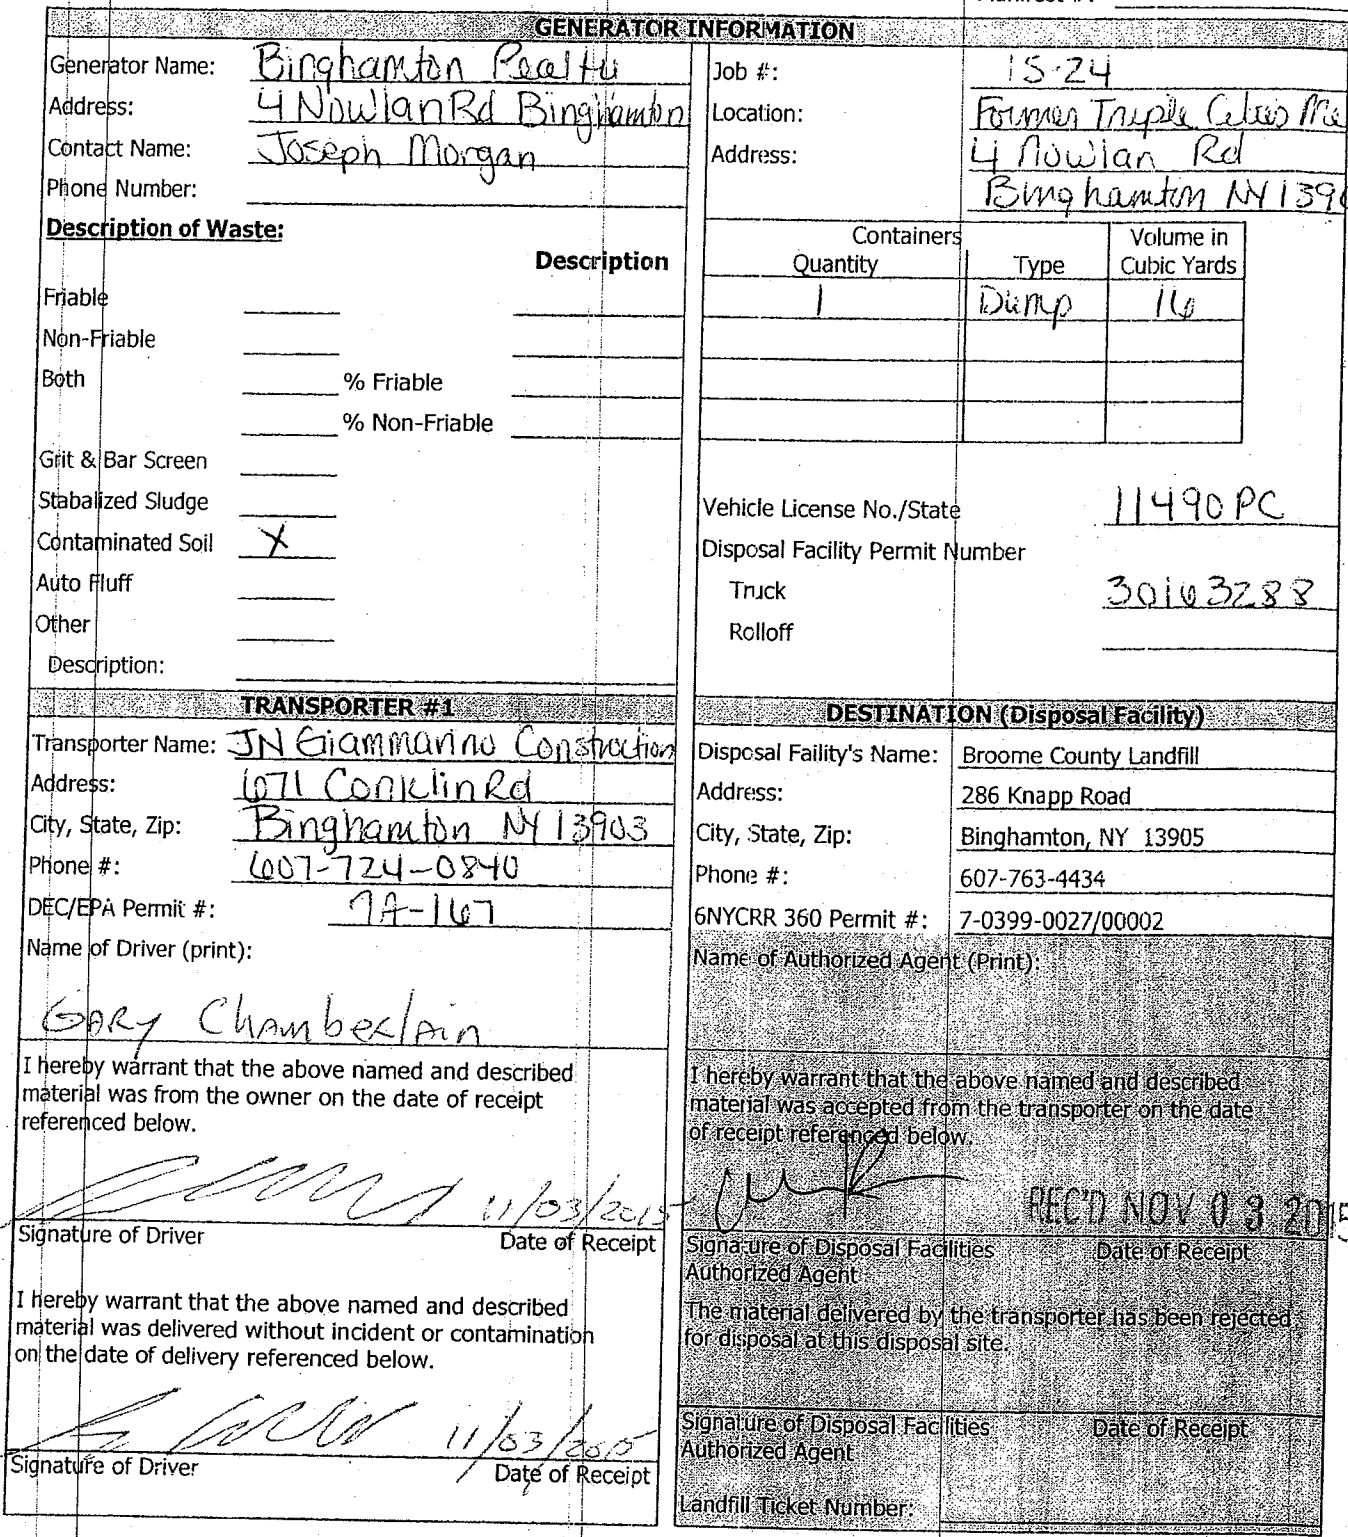 GENERATOR INFORMATION
Generator Name: Binghamton Realty
Address: 4 Nowlan Rd Binghamton
Contact Name: Joseph Morgan
Phone Number:
Job #: 15-24
Location: Former Triple Cities Me
Address: 4 Nowlan Rd
Binghamton NY 139
Description of Waste:
Description
Friable
Non-Friable
Both % Friable
% Non-Friable
Grit & Bar Screen
Stabalized Sludge
Contaminated Soil X
Auto Fluff
Other
Description:
Containers Volume in
Quantity Type Cubic Yards
1 Dump 16
Vehicle License No./State 11490 PC
Disposal Facility Permit Number
Truck 30163288
Rolloff
TRANSPORTER #1
Transporter Name: JN Giammarino Construction
Address: 671 Conklin Rd
City, State, Zip: Binghamton NY 13903
Phone #: 607-724-0840
DEC/EPA Permit #: 7A-167
Name of Driver (print):
Gary Chamberlain
I hereby warrant that the above named and described
material was from the owner on the date of receipt
referenced below.
11/03/2015
Signature of Driver Date of Receipt
I hereby warrant that the above named and described
material was delivered without incident or contamination
on the date of delivery referenced below.
11/03/2015
Signature of Driver Date of Receipt
DESTINATION (Disposal Facility)
Disposal Faility's Name: Broome County Landfill
Address: 286 Knapp Road
City, State, Zip: Binghamton, NY 13905
Phone #: 607-763-4434
6NYCRR 360 Permit #: 7-0399-0027/00002
Name of Authorized Agent (Print):
I hereby warrant that the above named and described
material was accepted from the transporter on the date
of receipt referenced below.
REC'D NOV 03 2015
Signature of Disposal Facilities Date of Receipt
Authorized Agent
The material delivered by the transporter has been rejected
for disposal at this disposal site.
Signature of Disposal Facilities Date of Receipt
Authorized Agent
Landfill Ticket Number: